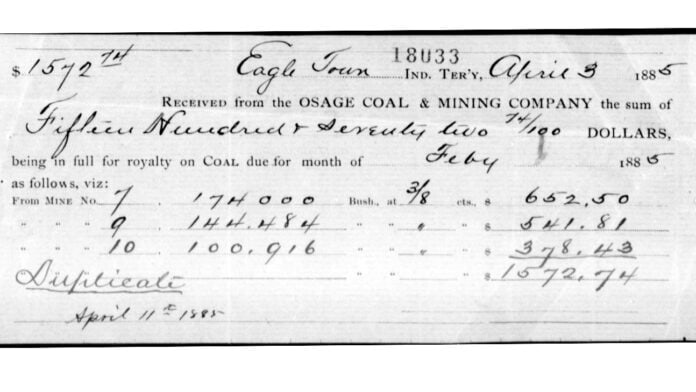 18033
$ 1572 74 Eagle Town IND. TER'Y, April 3 1885
RECEIVED from the OSAGE COAL & MINING COMPANY the sum of
Fifteen Hundred & Seventy two 74/100 DOLLARS,
being in full for royalty on COAL due for month of Feby 1885
as follows, viz:
FROM MINE No. 7 . 174000 BUSH., at 3/8 cts., $ 652.50
" " " 9 . 144.484 " " " " $ 541.81
" " " 10 . 100.916 " " " " $ 378.43
Duplicate " " " $ 1572.74
April 11th 1885